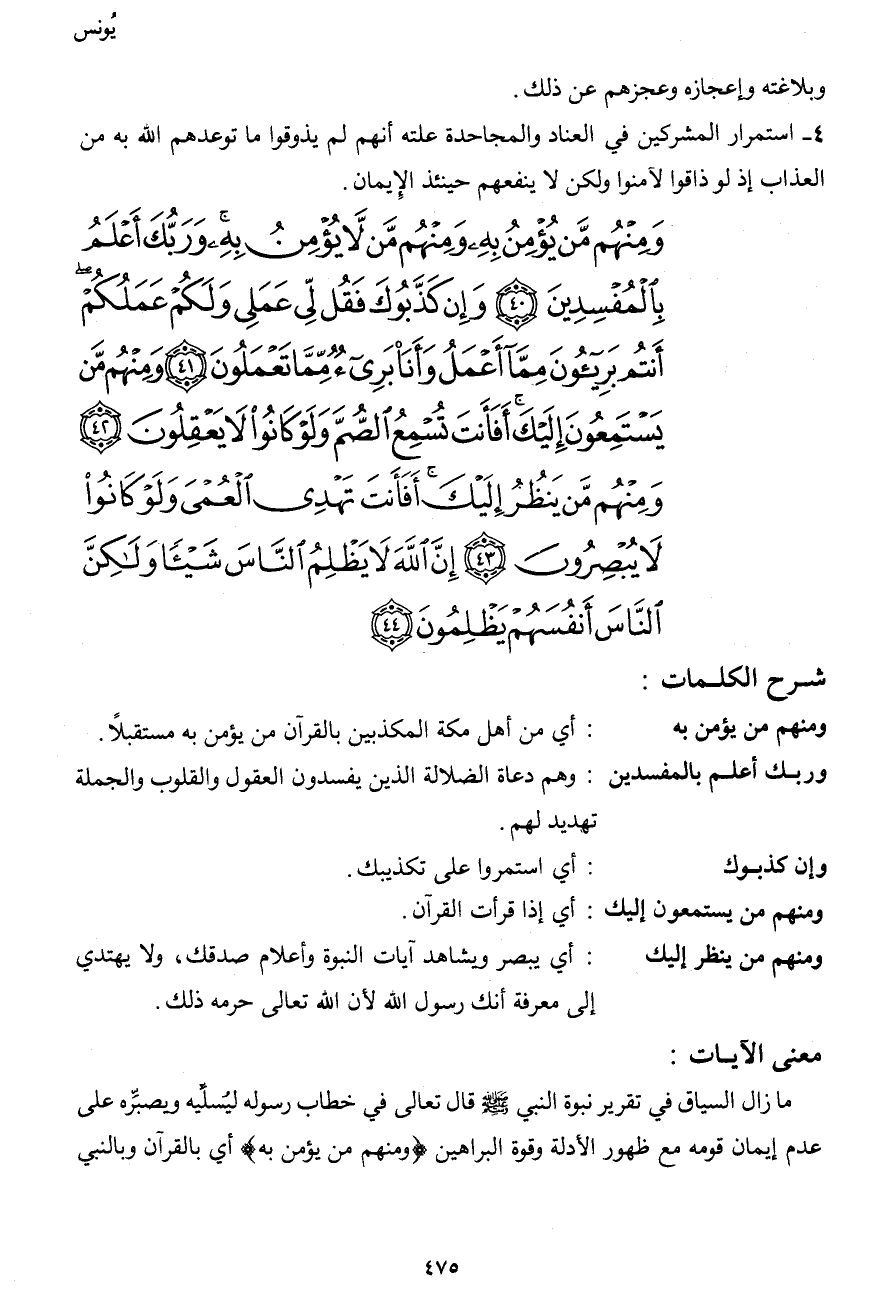 يُونس
وبلاغته وإعجازه وعجزهم عن ذلك .
٤ـ استمرار المشركين في العناد والمجاحدة علته أنهم لم يذوقوا ما توعدهم الله به من
العذاب إذ لو ذاقوا لآمنوا ولكن لا ينفعهم حينئذ الإِيمان .
وَمِنْهُم مَّن يُؤْمِنُ بِهِۦ وَمِنْهُم مَّن لَّا يُؤْمِنُ بِهِۦۚ وَرَبُّكَ أَعْلَمُ
بِٱلْمُفْسِدِينَ ﴿٤٠﴾ وَإِن كَذَّبُوكَ فَقُل لِّى عَمَلِى وَلَكُمْ عَمَلُكُمْۖ
أَنتُم بَرِيٓـُٔونَ مِمَّآ أَعْمَلُ وَأَنَا۠ بَرِىٓءٌ مِّمَّا تَعْمَلُونَ ﴿٤١﴾ وَمِنْهُم مَّن
يَسْتَمِعُونَ إِلَيْكَۚ أَفَأَنتَ تُسْمِعُ ٱلصُّمَّ وَلَوْ كَانُوا۟ لَا يَعْقِلُونَ ﴿٤٢﴾
وَمِنْهُم مَّن يَنظُرُ إِلَيْكَۚ أَفَأَنتَ تَهْدِى ٱلْعُمْىَ وَلَوْ كَانُوا۟
لَا يُبْصِرُونَ ﴿٤٣﴾ إِنَّ ٱللَّهَ لَا يَظْلِمُ ٱلنَّاسَ شَيْـًٔا وَلَـٰكِنَّ
ٱلنَّاسَ أَنفُسَهُمْ يَظْلِمُونَ ﴿٤٤﴾
شـرح الكلـمات :
ومنهم من يؤمن به : أي من أهل مكة المكذبين بالقرآن من يؤمن به مستقبلاً .
وربـك أعلـم بالمفسدين : وهم دعاة الضلالة الذين يفسدون العقول والقلوب والجملة
تهديد لهم .
وإن كذبـوك : أي استمروا على تكذيبك .
ومنهم من يستمعون إليك : أي إذا قرأت القرآن .
ومنهم من ينظر إليك : أي يبصر ويشاهد آيات النبوة وأعلام صدقك، ولا يهتدي
إلى معرفة أنك رسول الله لأن الله تعالى حرمه ذلك .
معنى الآيـات :
ما زال السياق في تقرير نبوة النبي ﷺ قال تعالى في خطاب رسوله ليُسلِّيه ويصبِّره على
عدم إيمان قومه مع ظهور الأدلة وقوة البراهين ﴿ومنهم من يؤمن به﴾ أي بالقرآن وبالنبي
٤٧٥